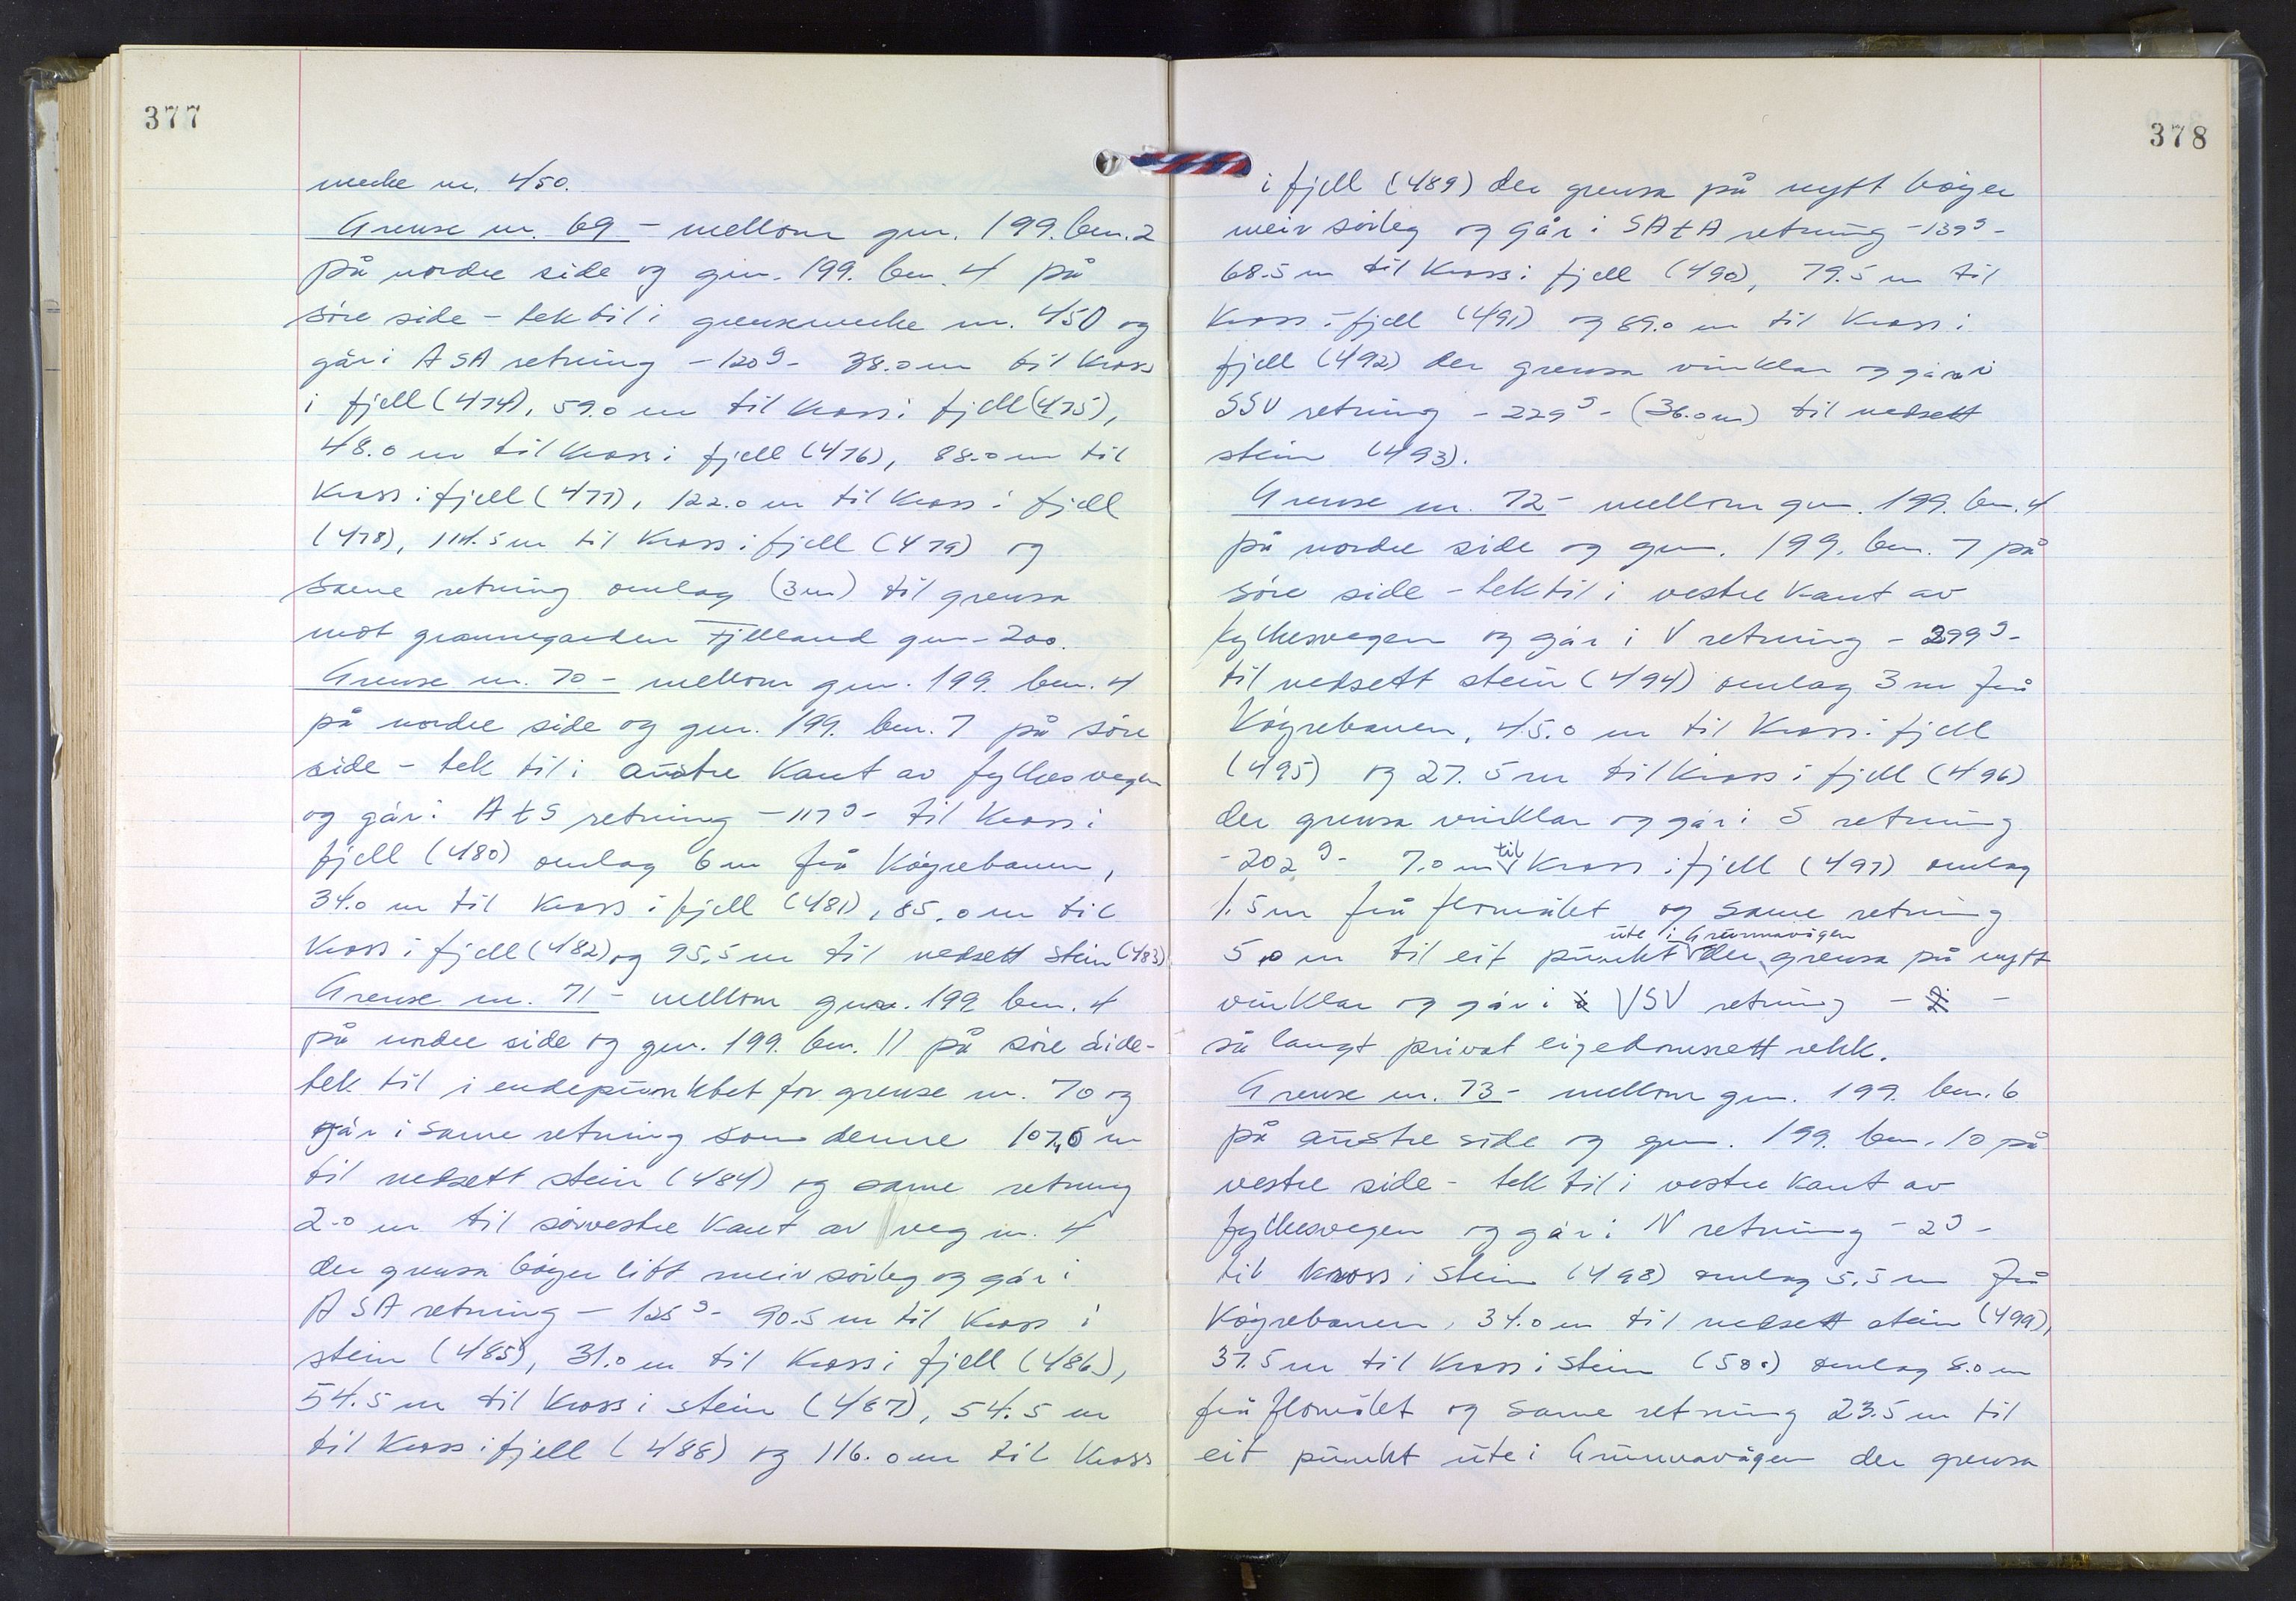 377
merke nr. 450.
Grense nr. 69 - mellom gnr. 199. bnr. 2
på nordre side og gnr. 199. bnr. 4 på
søre side - tek til i grensemerke nr. 450 og
går i ASA retning - 120g - 38.0 m til kross
i fjell (474), 59.0 m til kross i fjell (475),
48.0 m til kross i fjell (476), 88.0 m til
kross i fjell (477), 122.0 m til kross i fjell
(478), 114.5 m til kross i fjell (479) og
same retning omlag (3m) til grensa
mot grannegarden Fjelland gnr. 200.
Grense nr. 70 - mellom gnr. 199. bnr. 4
på nordre side og gnr. 199. bnr. 7 på søre
side - tek til i austre kant av fylkesvegen
og går i AtS retning - 117g - til kross i
fjell (480) omlag 6 m frå køyrebanen,
34.0 m til kross i fjell (481), 85.0 m til
kross i fjell (482) og 95.5 m til nedsett stein (483)
Grense nr. 71 - mellom gnr. 199 bnr. 4
på nordre side og gnr. 199. bnr. 11 på søre side -
tek til i endepunktet for grense nr. 70 og
går i same retning som denne 107,0 m
til nedsett stein (484) og same retning
2.0 m til sørvestre kant av veg nr. 4
der grensa bøyer litt meir sørleg og går i
ASA retning - 125g - 90.5 m til kross i
stein (485), 31.0 m til kross i fjell (486),
54.5 m til kross i stein (487), 54.5 m
til kross i fjell (488) og 116.0 m til kross
378
i fjell (489) der grensa på nytt bøyer
meir sørleg og går i SAtA retning - 139g -
68.5 m til kross i fjell (490), 79.5 m til
kross i fjell (491) og 89.0 m til kross i
fjell (492) der grensa vinklar og går i
SSV retning - 229g - (36.0 m) til nedsett
stein (493).
Grense nr. 72 - mellom gnr. 199. bnr. 4
på nordre side og gnr. 199. bnr. 7 på
søre side - tek til i vestre kant av
fylkesvegen og går i V retning - 299g -
til nedsett stein (494) omlag 3 m frå
køyrebanen, 45.0 m til kross i fjell
(495) og 27.5 m til kross i fjell (496)
der grensa vinklar og går i S retning
- 202g - 7.0 m til kross i fjell (497) omlag
1.5 m frå flomålet og same retning
5.0 m til eit punkt ute i Grunnavågen der grensa på nytt
vinklar og går i VSV retning - -
så langt privat eigedomsrett rekk.
Grense nr. 73 - mellom gnr. 199. bnr. 6
på austre side og gnr. 199. bnr. 10 på
vestre side - tek til i vestre kant av
fylkesvegen og går i N retning - 2g -
til kross i stein (498) omlag 5.5 m frå
køyrebanen, 34.0 m til nedsett stein (499),
37.5 m til kross i stein (500) omlag 8.0 m
frå flomålet og same retning 23.5 m til
eit punkt ute i Grunnavågen der grensa